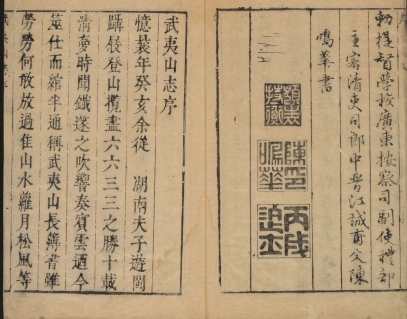 勅提督學校廣東按察司副使禮部
主客清吏司郎中晉江誠甫父陳
鳴華書
陳印
鳴華
武夷山志序
憶曩年癸亥余從 湖南夫子遊閩
躡屐登山攬盡六六三三之勝十載
清夢時聞鐵邃之吹響奏賓雲迺今
筮仕而綰半通稱武夷山長簿書雖
勞勞何敢放過隹山水蘿月松風等